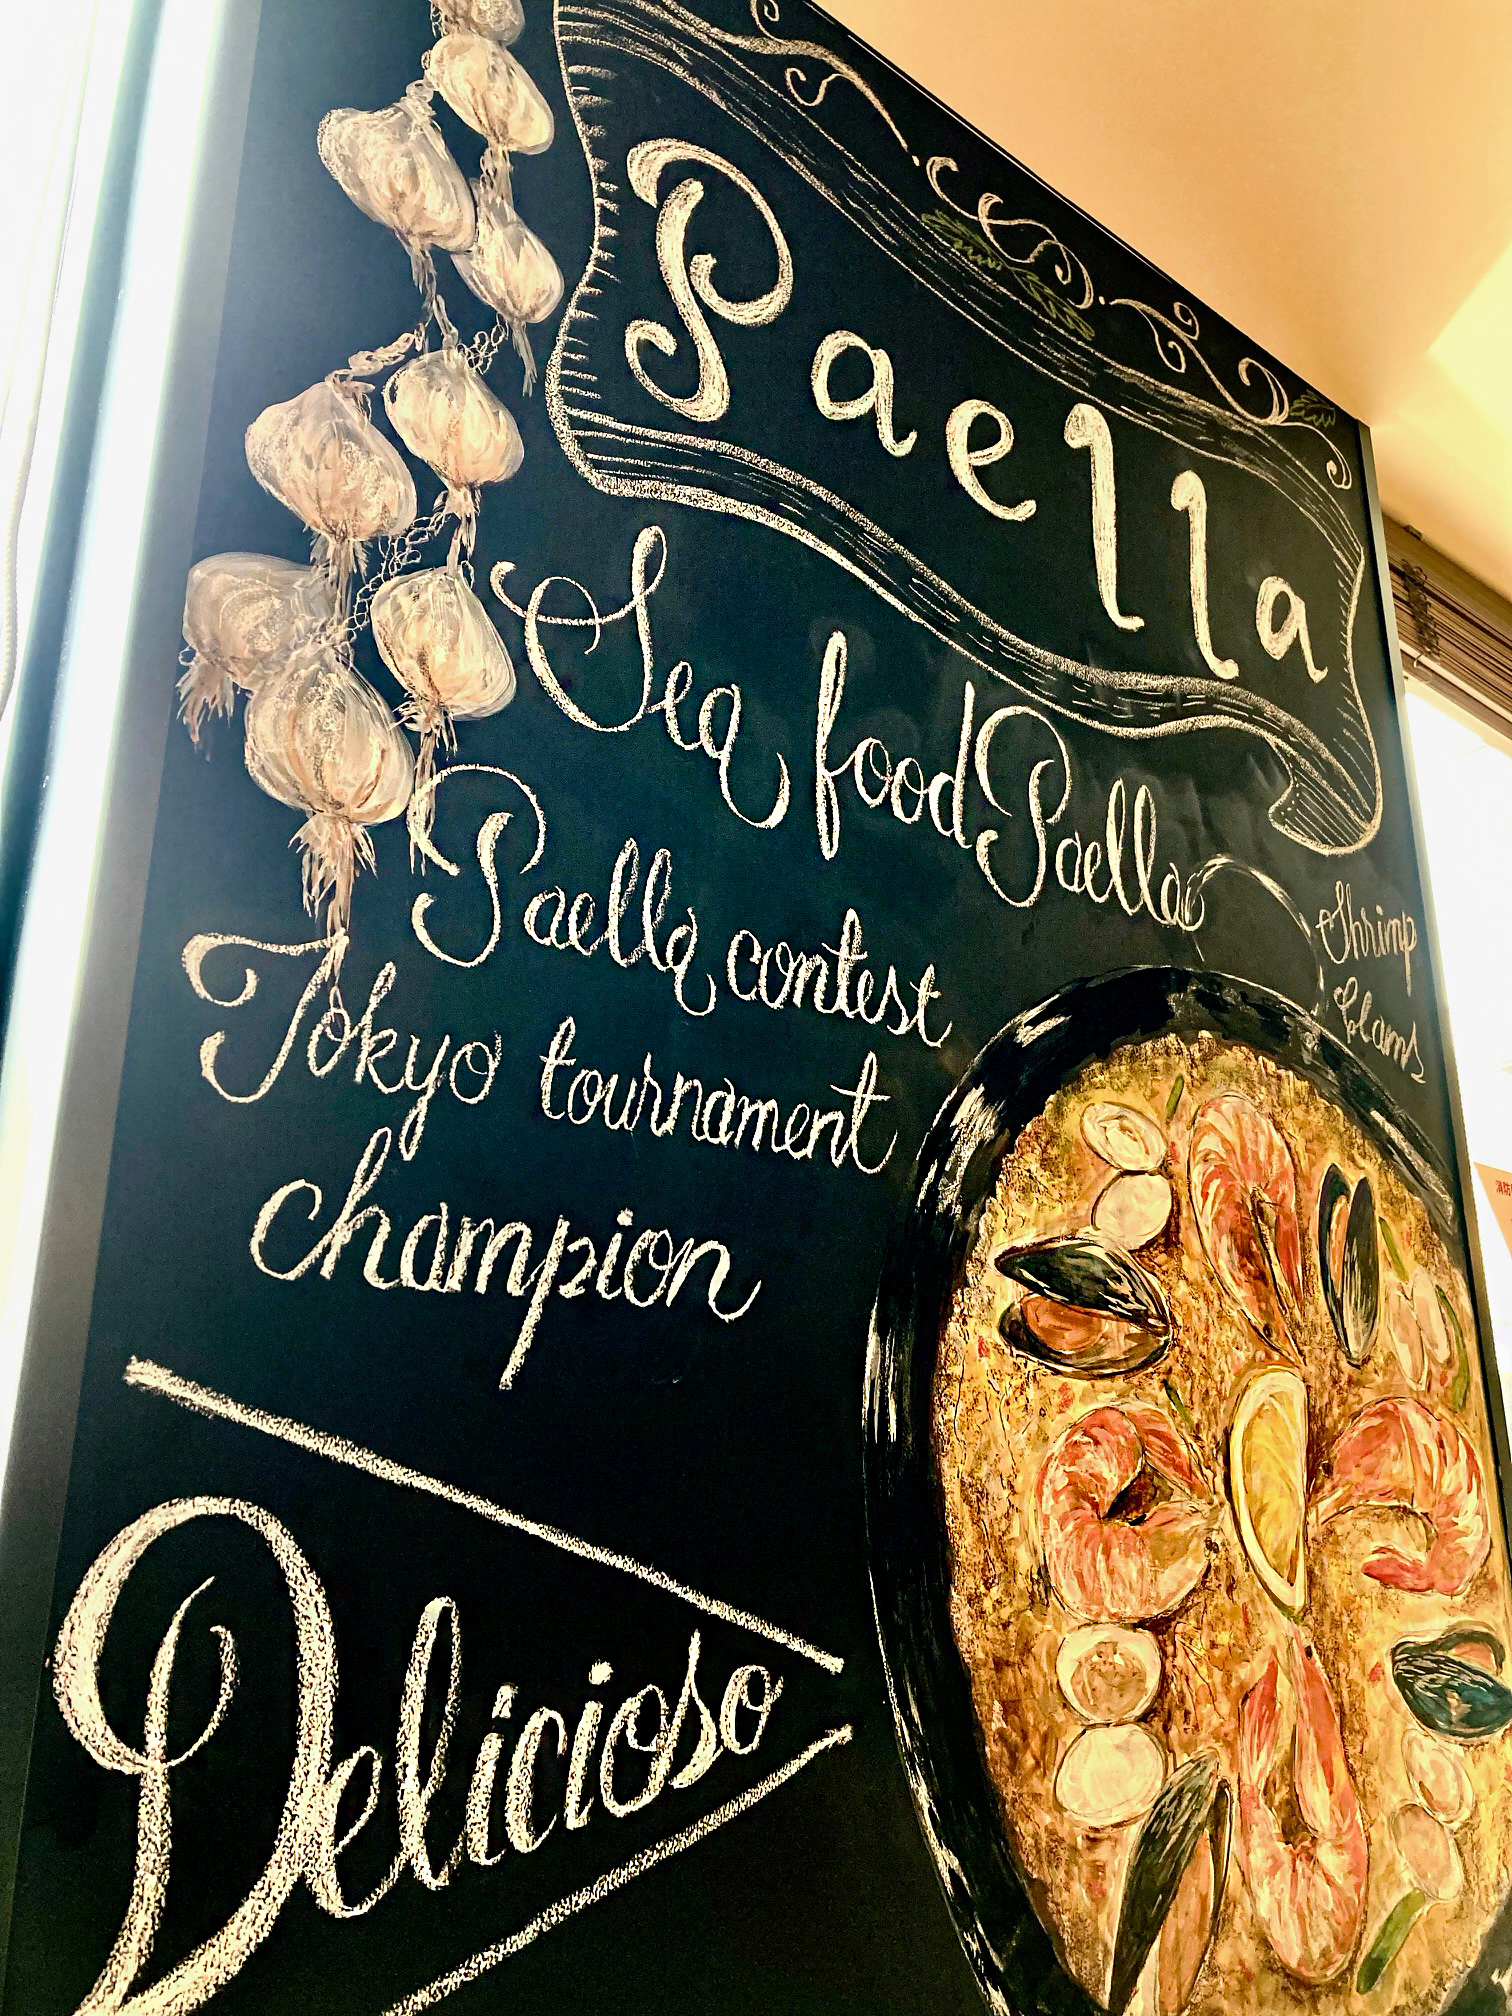 Paella
Sea food Paella
Paella contest
Tokyo tournament
champion
Shrimp
Clams
Delicioso